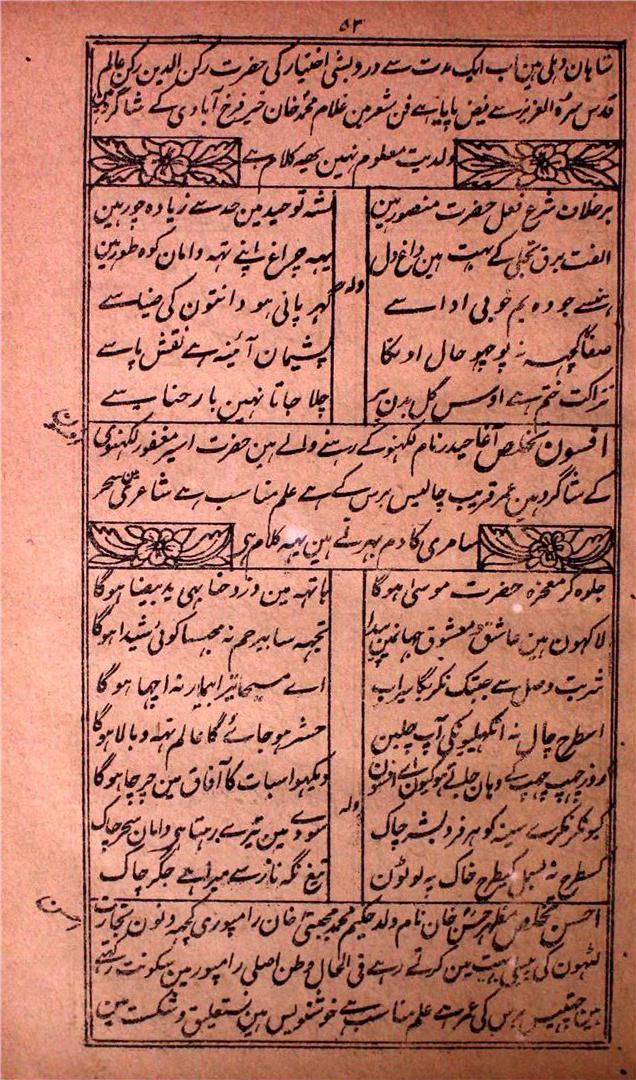 ۵۳
شاہان دہلی ہین اب ایک مدت سے درویشی اختیار کی حضرت رکن الدین رکن عالم
قدس سرہ العزیز سے فیض پایا ہے فن شعر مین غلام محمد خان خبیر فرخ آبادی کے شاگرد ہین
ولدیت معلوم نہین یہہ کلام ہے
برخلاف شرع فعل حضرت منصور ہین نشہ توحید مین حد سے زیادہ چور ہین
الفت برق تجلی کے بہت ہین داغ دل یہہ چراغ اپنے تہہ دامان کوہ طور ہین
ولہ
ہنسے جو وہ یم خوبی ادا سے گہر پانی ہو دانتون کی ضیا سے
صفا کچہہ نہ پوچھو حال اوسکا پشیمان آئینہ ہے نقش پا سے
نزاکت ختم ہے اوس گل بدن پر چلا جاتا نہین بار حنا سے
افسون تخلص آغا حیدر نام لکہنو کے رہنے والے ہین حضرت اسیر مغفور لکہنوی
کے شاگرد ہین عمر قریب چالیس برس کے ہے علم مناسب ہے شاعری مین سحر
سامری کا دم بہرتے ہین یہہ کلام ہی
جلوہ گر معجزہ حضرت موسی ہوگا ہاتہہ مین دزد حنا بہی ید بیضا ہوگا
لاکہون ہین عاشق و معشوق جہانمین پیدا تجہہ سا بیرحم نہ مجہسا کوئی شیدا ہوگا
شربت وصل سے جبتک نکریگا سیراب اے مسیحا ترا بیمار نہ اچہا ہوگا
اسطرح چال نہ انکہیلیونکی آپ چلین حشر ہو جائے گا عالم تہہ و بالا ہوگا
روز چہپ چہپ کے وہان جاتے ہو کیون اے افسون دیکہو اسبات کا آفاق مین چرچا ہوگا
ولہ
کیونکر نکرے سینہ کو ہر فرد بشر چاک سودے مین تیرے رہتا ہی دامان سحر چاک
کسطرح نہ بسمل کیطرح خاک پہ لوٹون تیغ نگہ ناز سے میرا ہے جگر چاک
احسن تخلص مظہر حسن خان نام ولد حکیم محمد مجتبی خان رامپوری کچہہ دنون تجارت
لٹہون کی بہت مین کرتے رہے فی الحال وطن اصلی رامپور مین سکونت رکہتے
ہین چہتیس برس کی عمر ہے علم مناسب ہے خوشنویس ہین نستعلیق و شکست مین